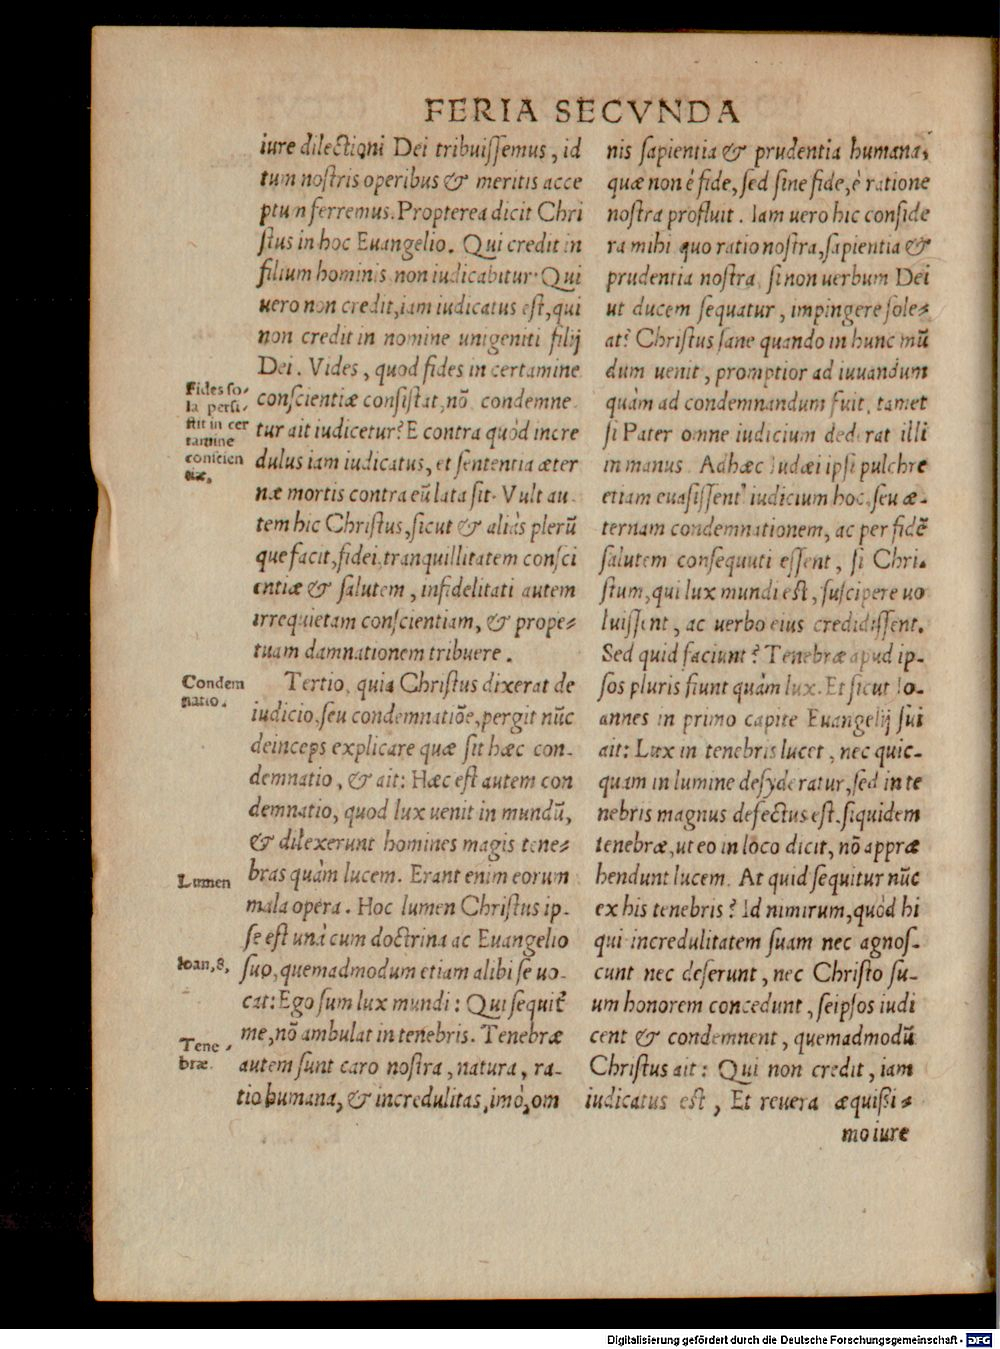 FERIA SECVNDA
iure dilectioni Dei tribuissemus, id
tum nostris operibus & meritis acce
ptum ferremus. Propterea dicit Chri
stus in hoc Euangelio. Qui credit in
filium hominis non iudicabitur. Qui
uero non credit, iam iudicatus est, qui
non credit in nomine unigeniti filij
Dei. Vides, quod fides in certamine
conscientiæ consistat, nō condemne
tur ait iudicetur? E contra quòd incre
dulus iam iudicatus, et sententia æter
næ mortis contra eū lata sit. Vult au-
tem hic Christus, sicut & aliàs plerū
que facit, fidei, tranquillitatem consci
entiæ & salutem, infidelitati autem
irrequietam conscientiam, & perpe-
tuam damnationem tribuere.
Tertio, quia Christus dixerat de
iudicio, seu condemnatiōe, pergit nūc
deinceps explicare quæ sit hæc con-
demnatio, & ait: Hæc est autem con
demnatio, quod lux uenit in mundū,
& dilexerunt homines magis tene-
bras quàm lucem. Erant enim eorum
mala opera. Hoc lumen Christus ip-
se est unà cum doctrina ac Euangelio
suo, quemadmodum etiam alibi se uo-
cat: Ego sum lux mundi: Qui sequit̃
me, nō ambulat in tenebris. Tenebræ
autem sunt caro nostra, natura, ra-
tio humana, & incredulitas, imò, om
Fides so-
la persi-
stit in cer
tamine
conscien
tiæ.
Condem
natio.
Lumen
Ioan, 8,
Tene-
bræ.
nis sapientia & prudentia humana,
quæ non è fide, sed sine fide, è ratione
nostra profluit. Iam uero hic conside
ra mihi quo ratio nostra, sapientia &
prudentia nostra, si non uerbum Dei
ut ducem sequatur, impingere sole-
at? Christus sane quando in hunc mū
dum uenit, promptior ad iuuandum
quàm ad condemnandum fuit, tamet
si Pater omne iudicium dederat illi
in manus. Adhæc Iudæi ipsi pulchre
etiam euasissent iudicium hoc, seu æ-
ternam condemnationem, ac per fidē
salutem consequuti essent, si Chri-
stum, qui lux mundi est, suscipere uo
luissent, ac uerbo eius credidissent.
Sed quid faciunt? Tenebræ apud ip-
sos pluris fiunt quàm lux. Et sicut Io-
annes in primo capite Euangelij sui
ait: Lux in tenebris lucet, nec quic-
quam in lumine desyderatur, sed in te
nebris magnus defectus est. siquidem
tenebræ, ut eo in loco dicit, nō appræ
hendunt lucem. At quid sequitur nūc
ex his tenebris? Id nimirum, quòd hi
qui incredulitatem suam nec agnos-
cunt nec deserunt, nec Christo su-
um honorem concedunt, seipsos iudi
cent & condemnent, quemadmodū
Christus ait: Qui non credit, iam
iudicatus est, Et reuera æquissi-
mo iure
Digitalisierung gefördert durch die Deutsche Forschungsgemeinschaft - DFG